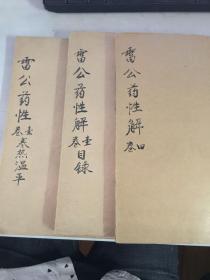 雷公药性解
卷四
雷公药性解
卷壹目錄
雷公药性
卷壹寒热温平